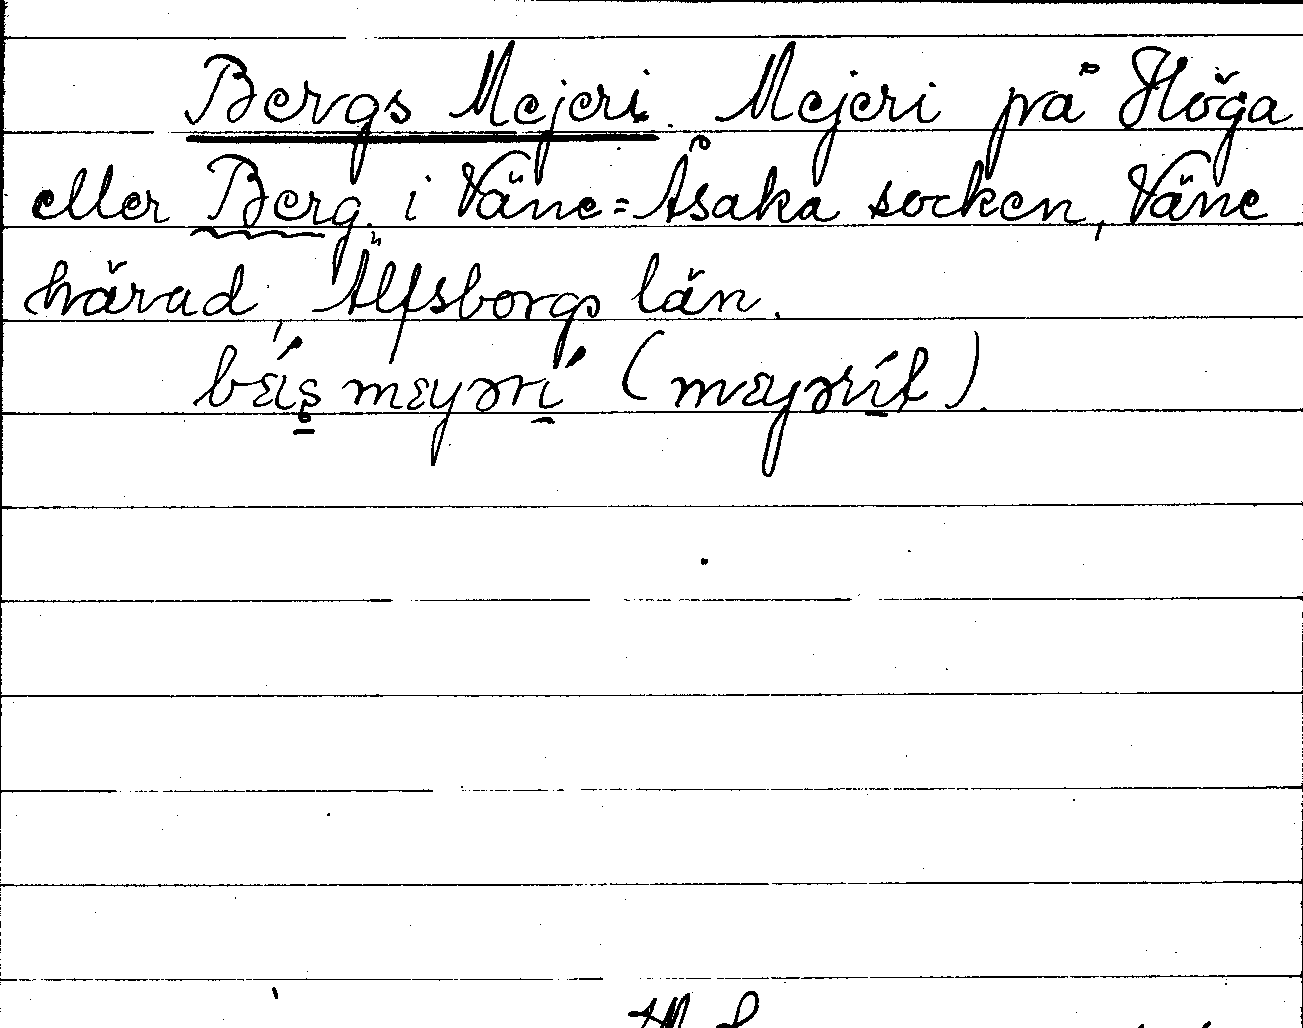 Bergs Mejeri. Mejeri på Höga
eller Berg i Väne=Åsaka socken, Väne
härad, Älfsborgs län.
bɛ́ıs̱ mɛyərí̱ (mɛyərí̱t).